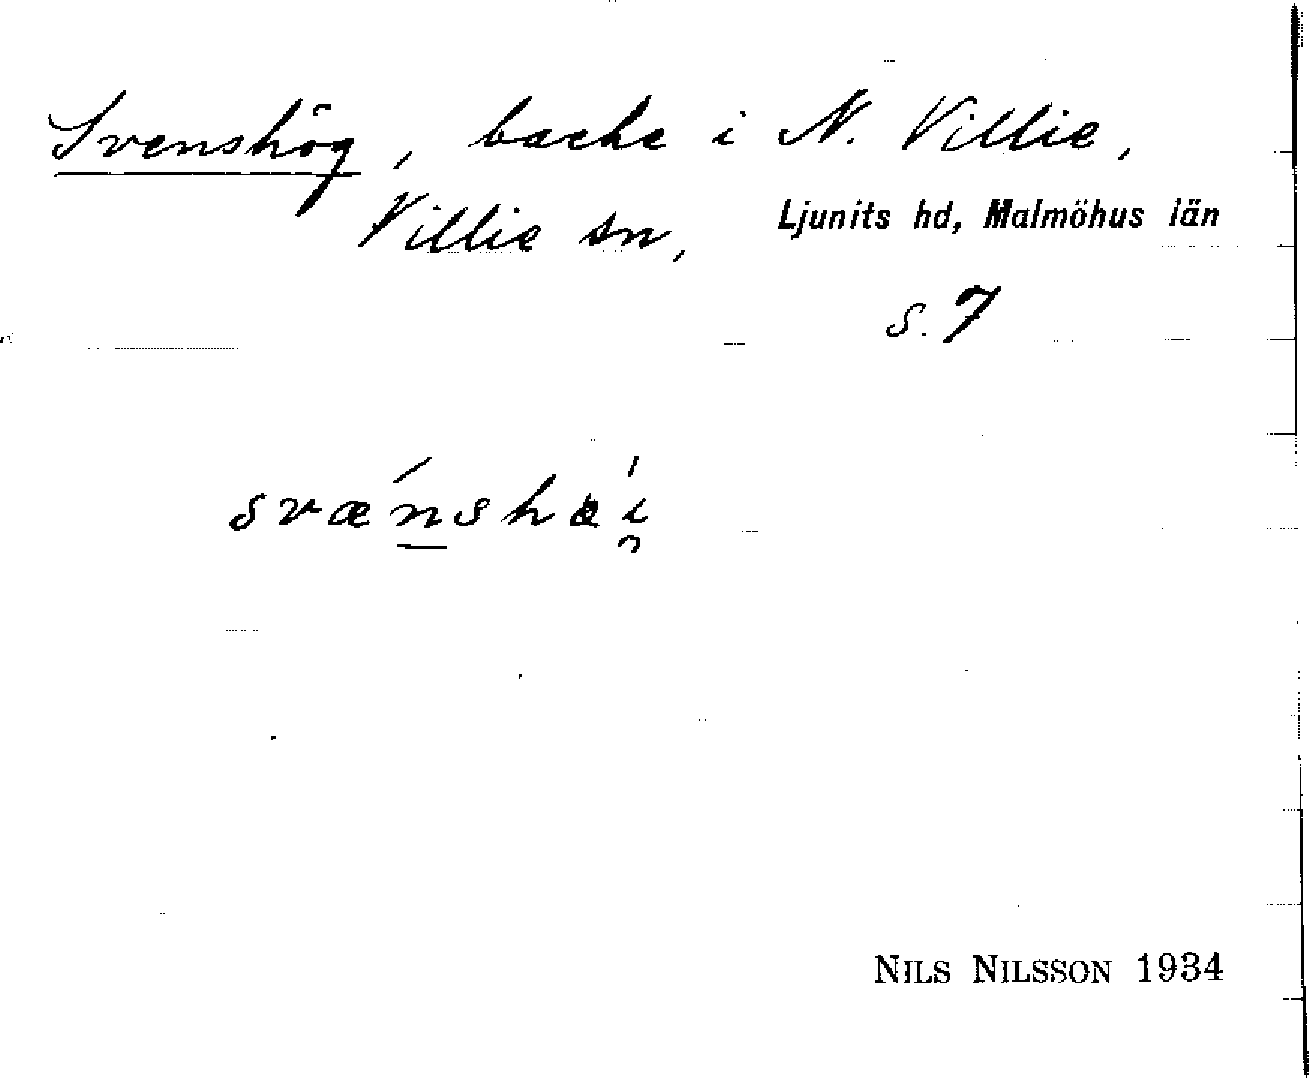 Svenshög, backe i N. Villie,
Villie sn, Ljunits hd, Malmöhus län
s. 7
svǽnshæi̯
NILS NILSSON 1934